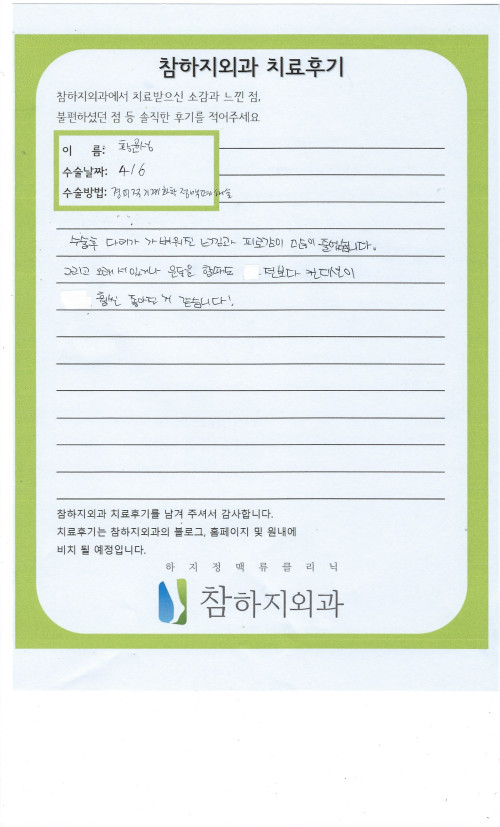 참하지외과 치료후기
참하지외과에서 치료받으신 소감과 느낀 점,
불편하셨던 점 등 솔직한 후기를 적어주세요
이 름:
수술날짜: 4/6
수술방법: 경피적기계화학정맥폐쇄술
수술후 다리가 가벼워진 느낌과 피로감이 많이 줄었습니다.
그리고 오래 서있거나 운동을 할때도 전보다 컨디션이
훨씬 좋아진 거 같습니다!
참하지외과 치료후기를 남겨 주셔서 감사합니다.
치료후기는 참하지외과의 블로그, 홈페이지 및 원내에
비치 될 예정입니다.
하지정맥류클리닉
참하지외과